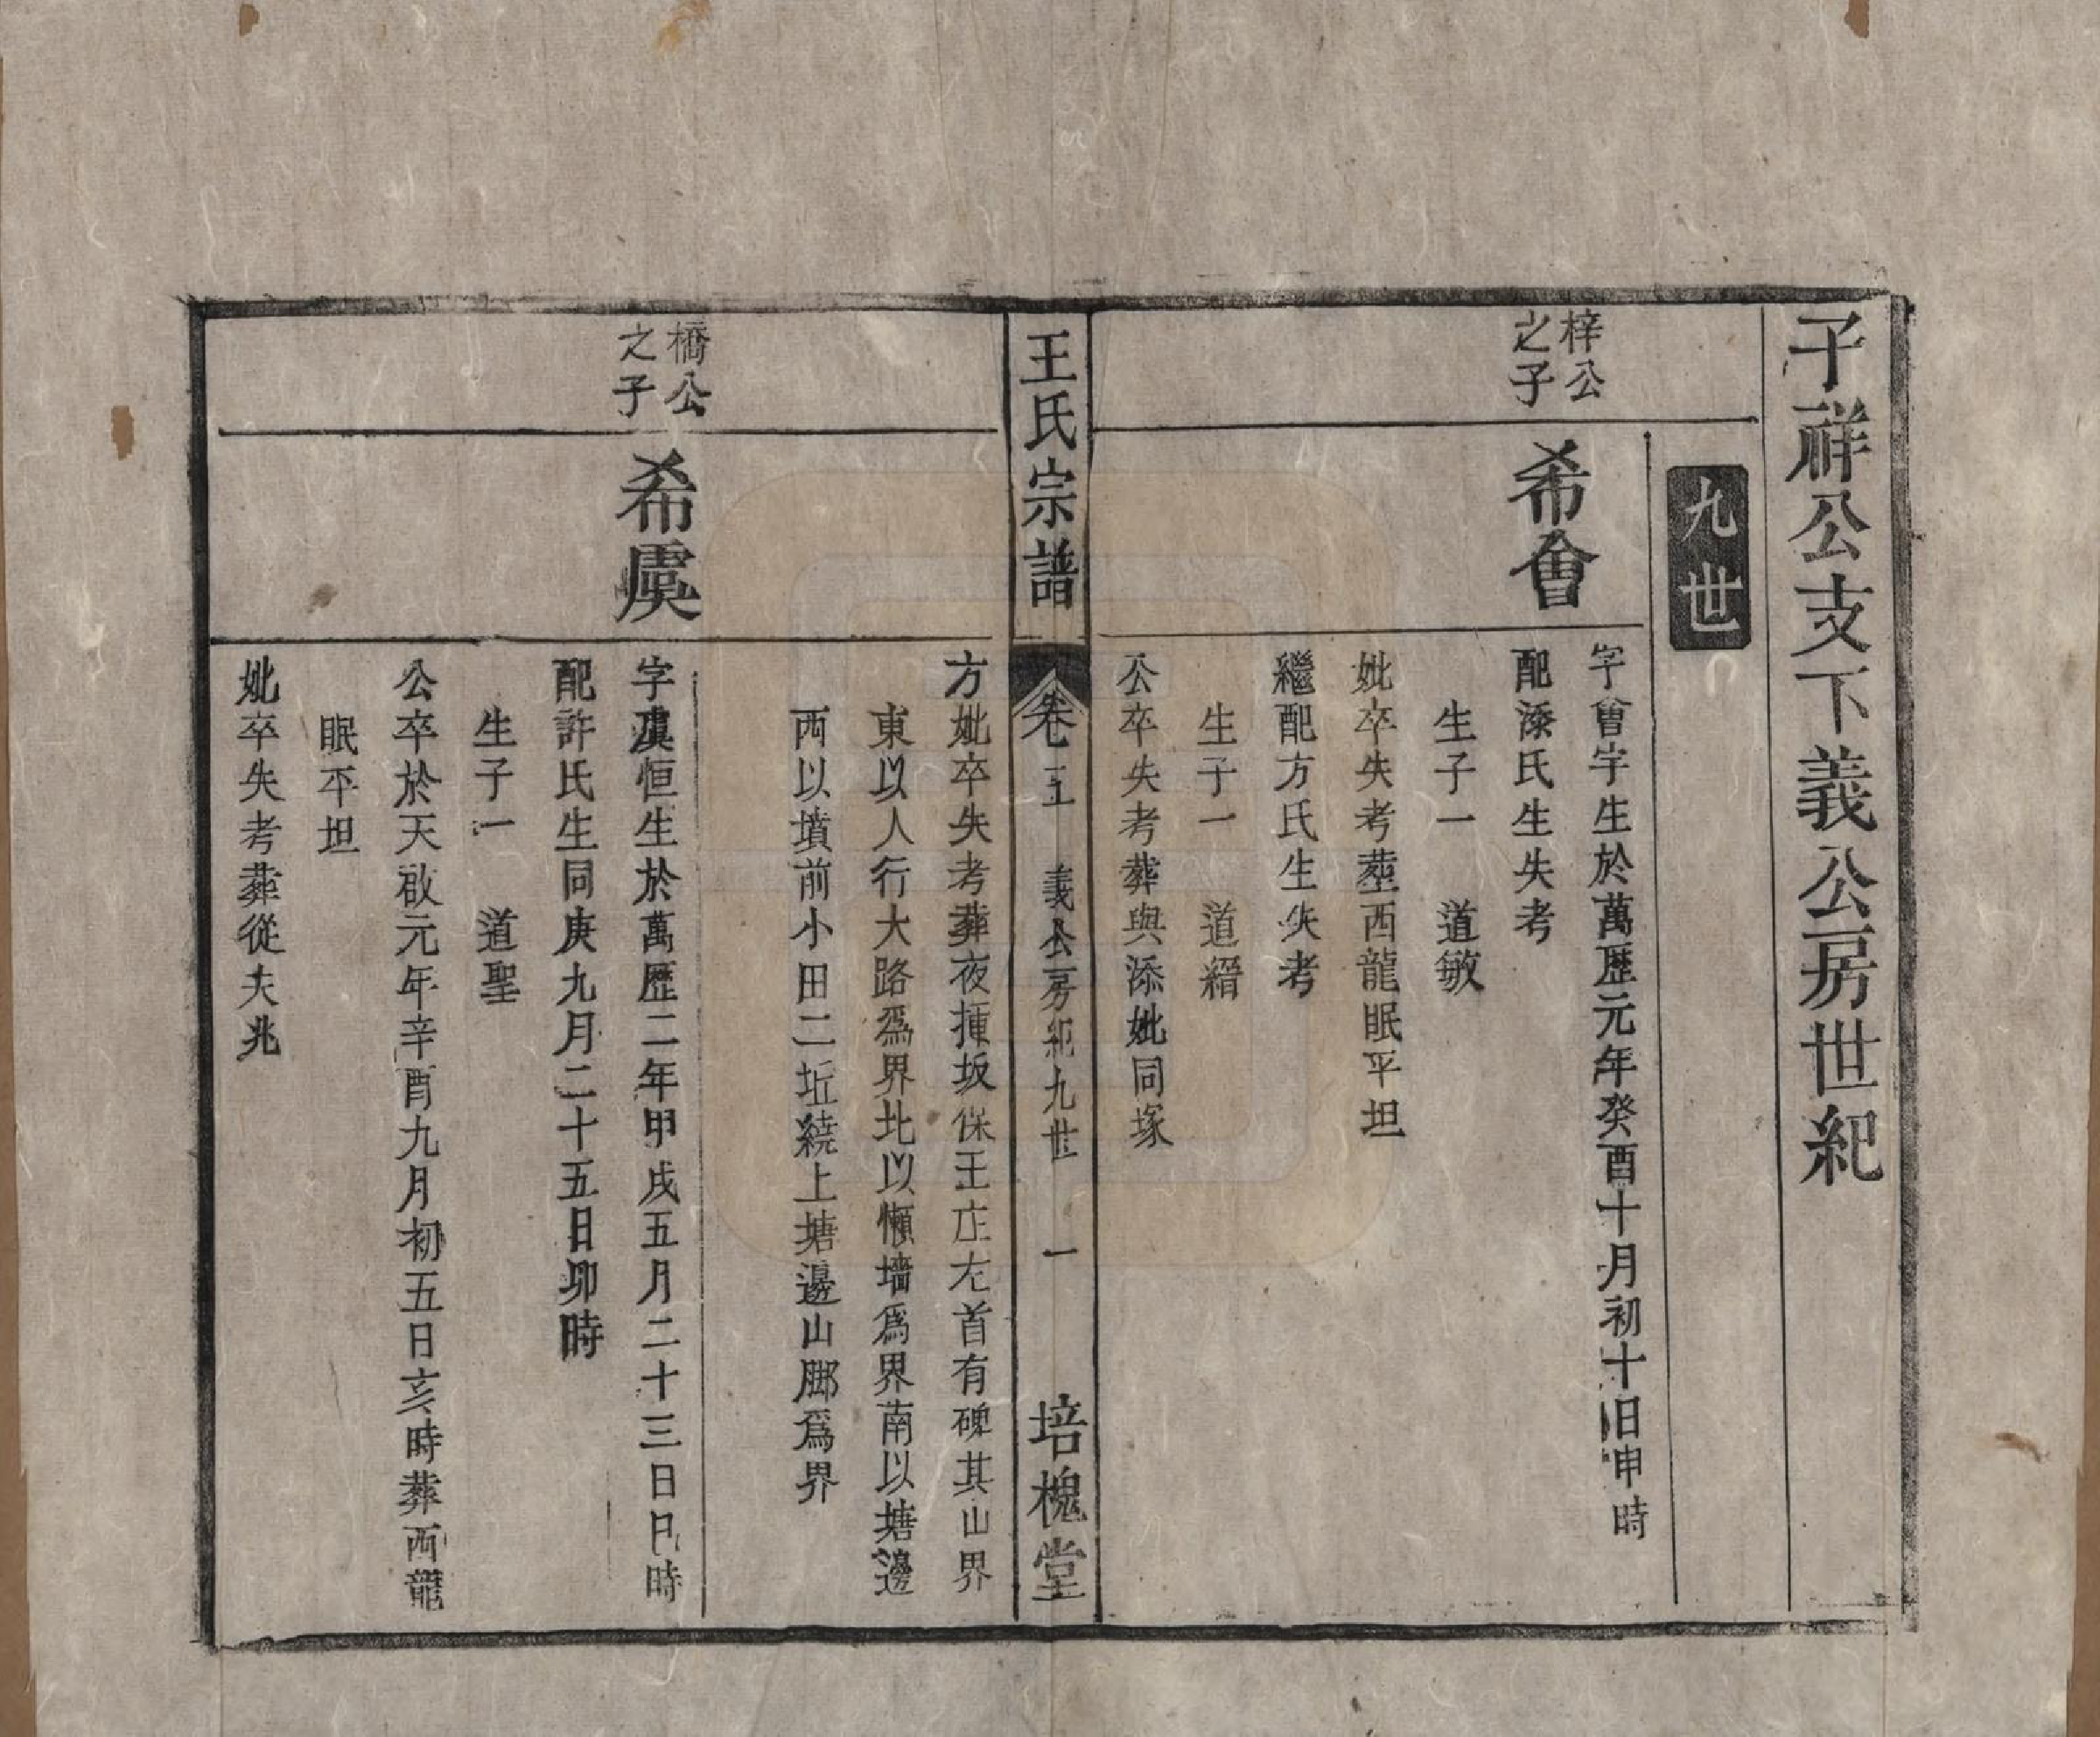 子祥公支下義公房世紀
九世
梓公
之子
希會
字曾字生於萬歷元年癸酉十月初十日申時
配漆氏生失考
生子一　道敏
妣卒失考塟西龍眠平坦
繼配方氏生失考
生子一　道縉
公卒失考葬與漆妣同塚
王氏宗譜
卷五　義公房紀九世　一
培槐堂
方妣卒失考葬夜揷坂保王庄左首有碑其山界
東以人行大路爲界北以懶墻爲界南以塘邊
西以墳前小田二坵繞上塘邊山脚爲界
橋公
之子
希虞
字虞恒生於萬歷二年甲戌五月二十三日巳時
配許氏生同庚九月二十五日卯時
生子一　道聖
公卒於天啟元年辛酉九月初五日亥時葬西龍
眠平坦
妣卒失考葬從夫兆